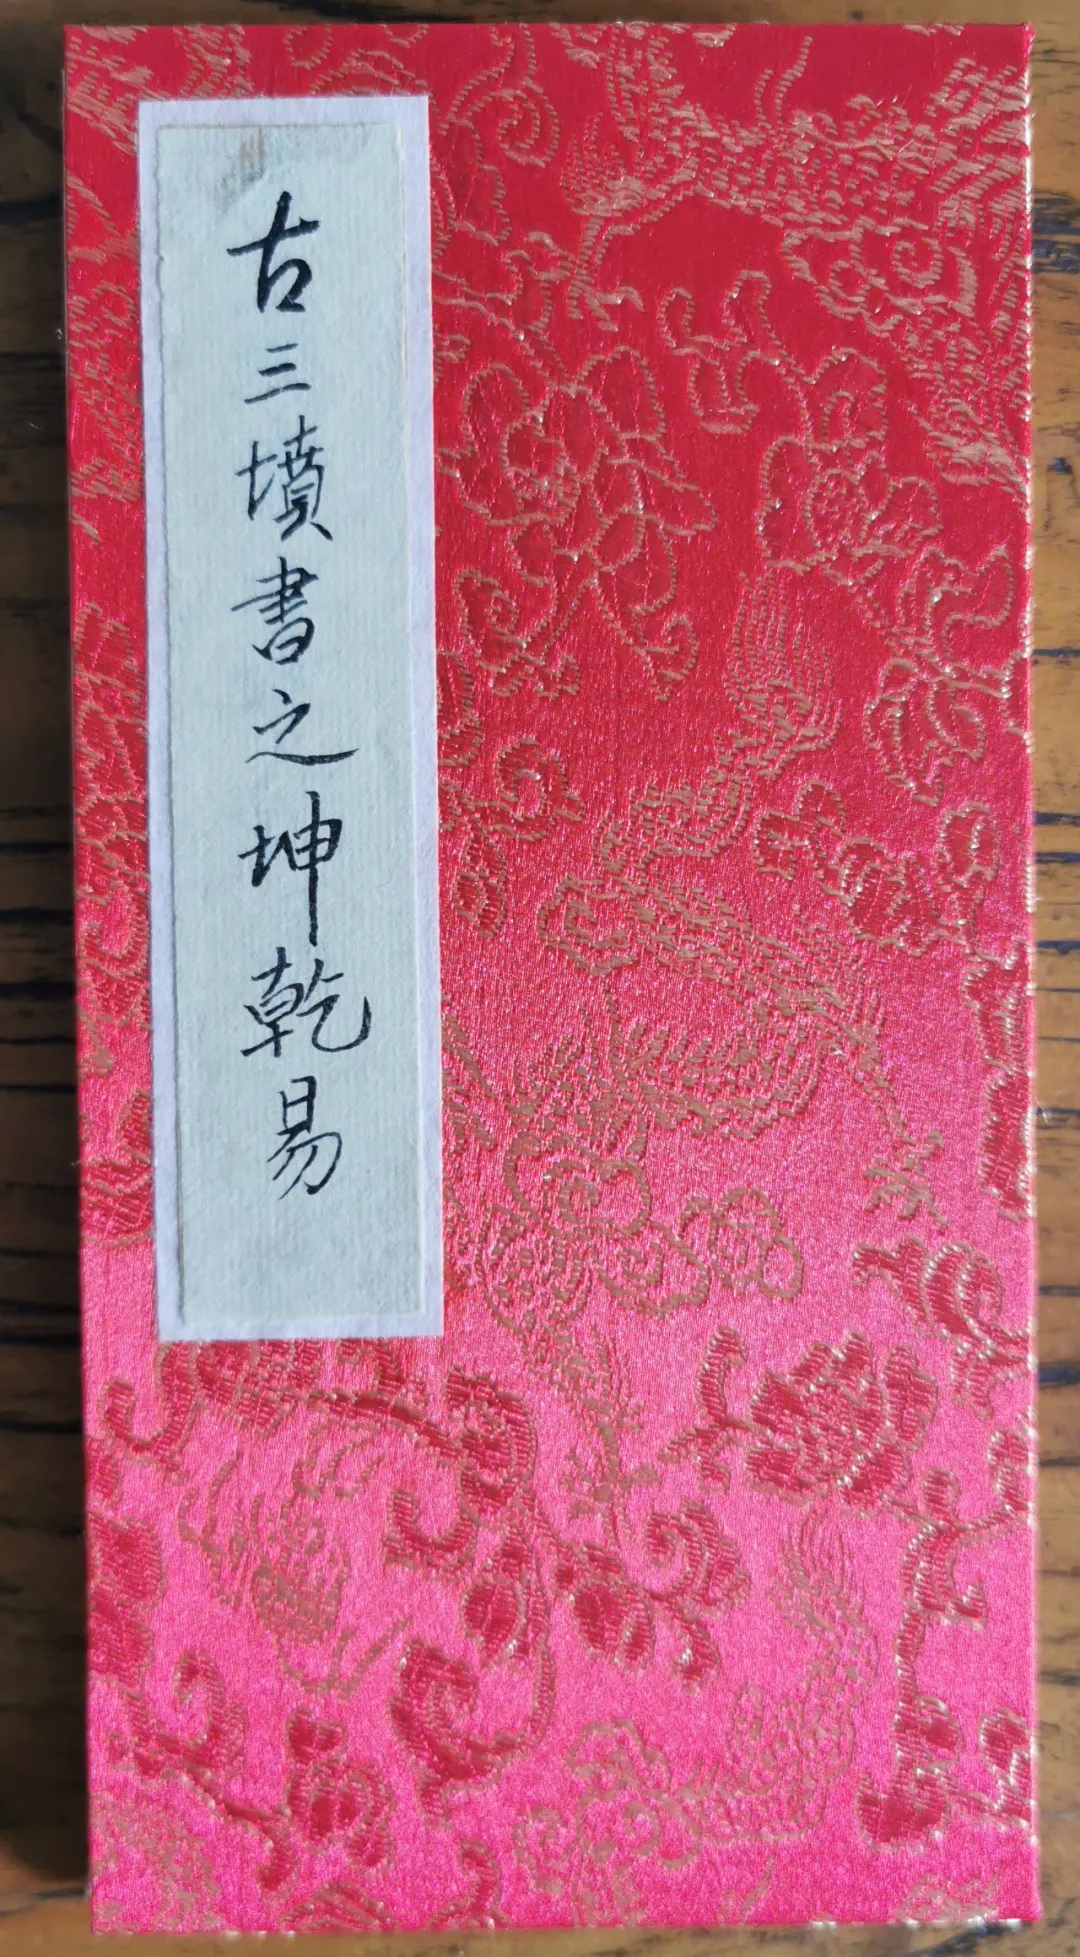 古三墳書之坤乾易